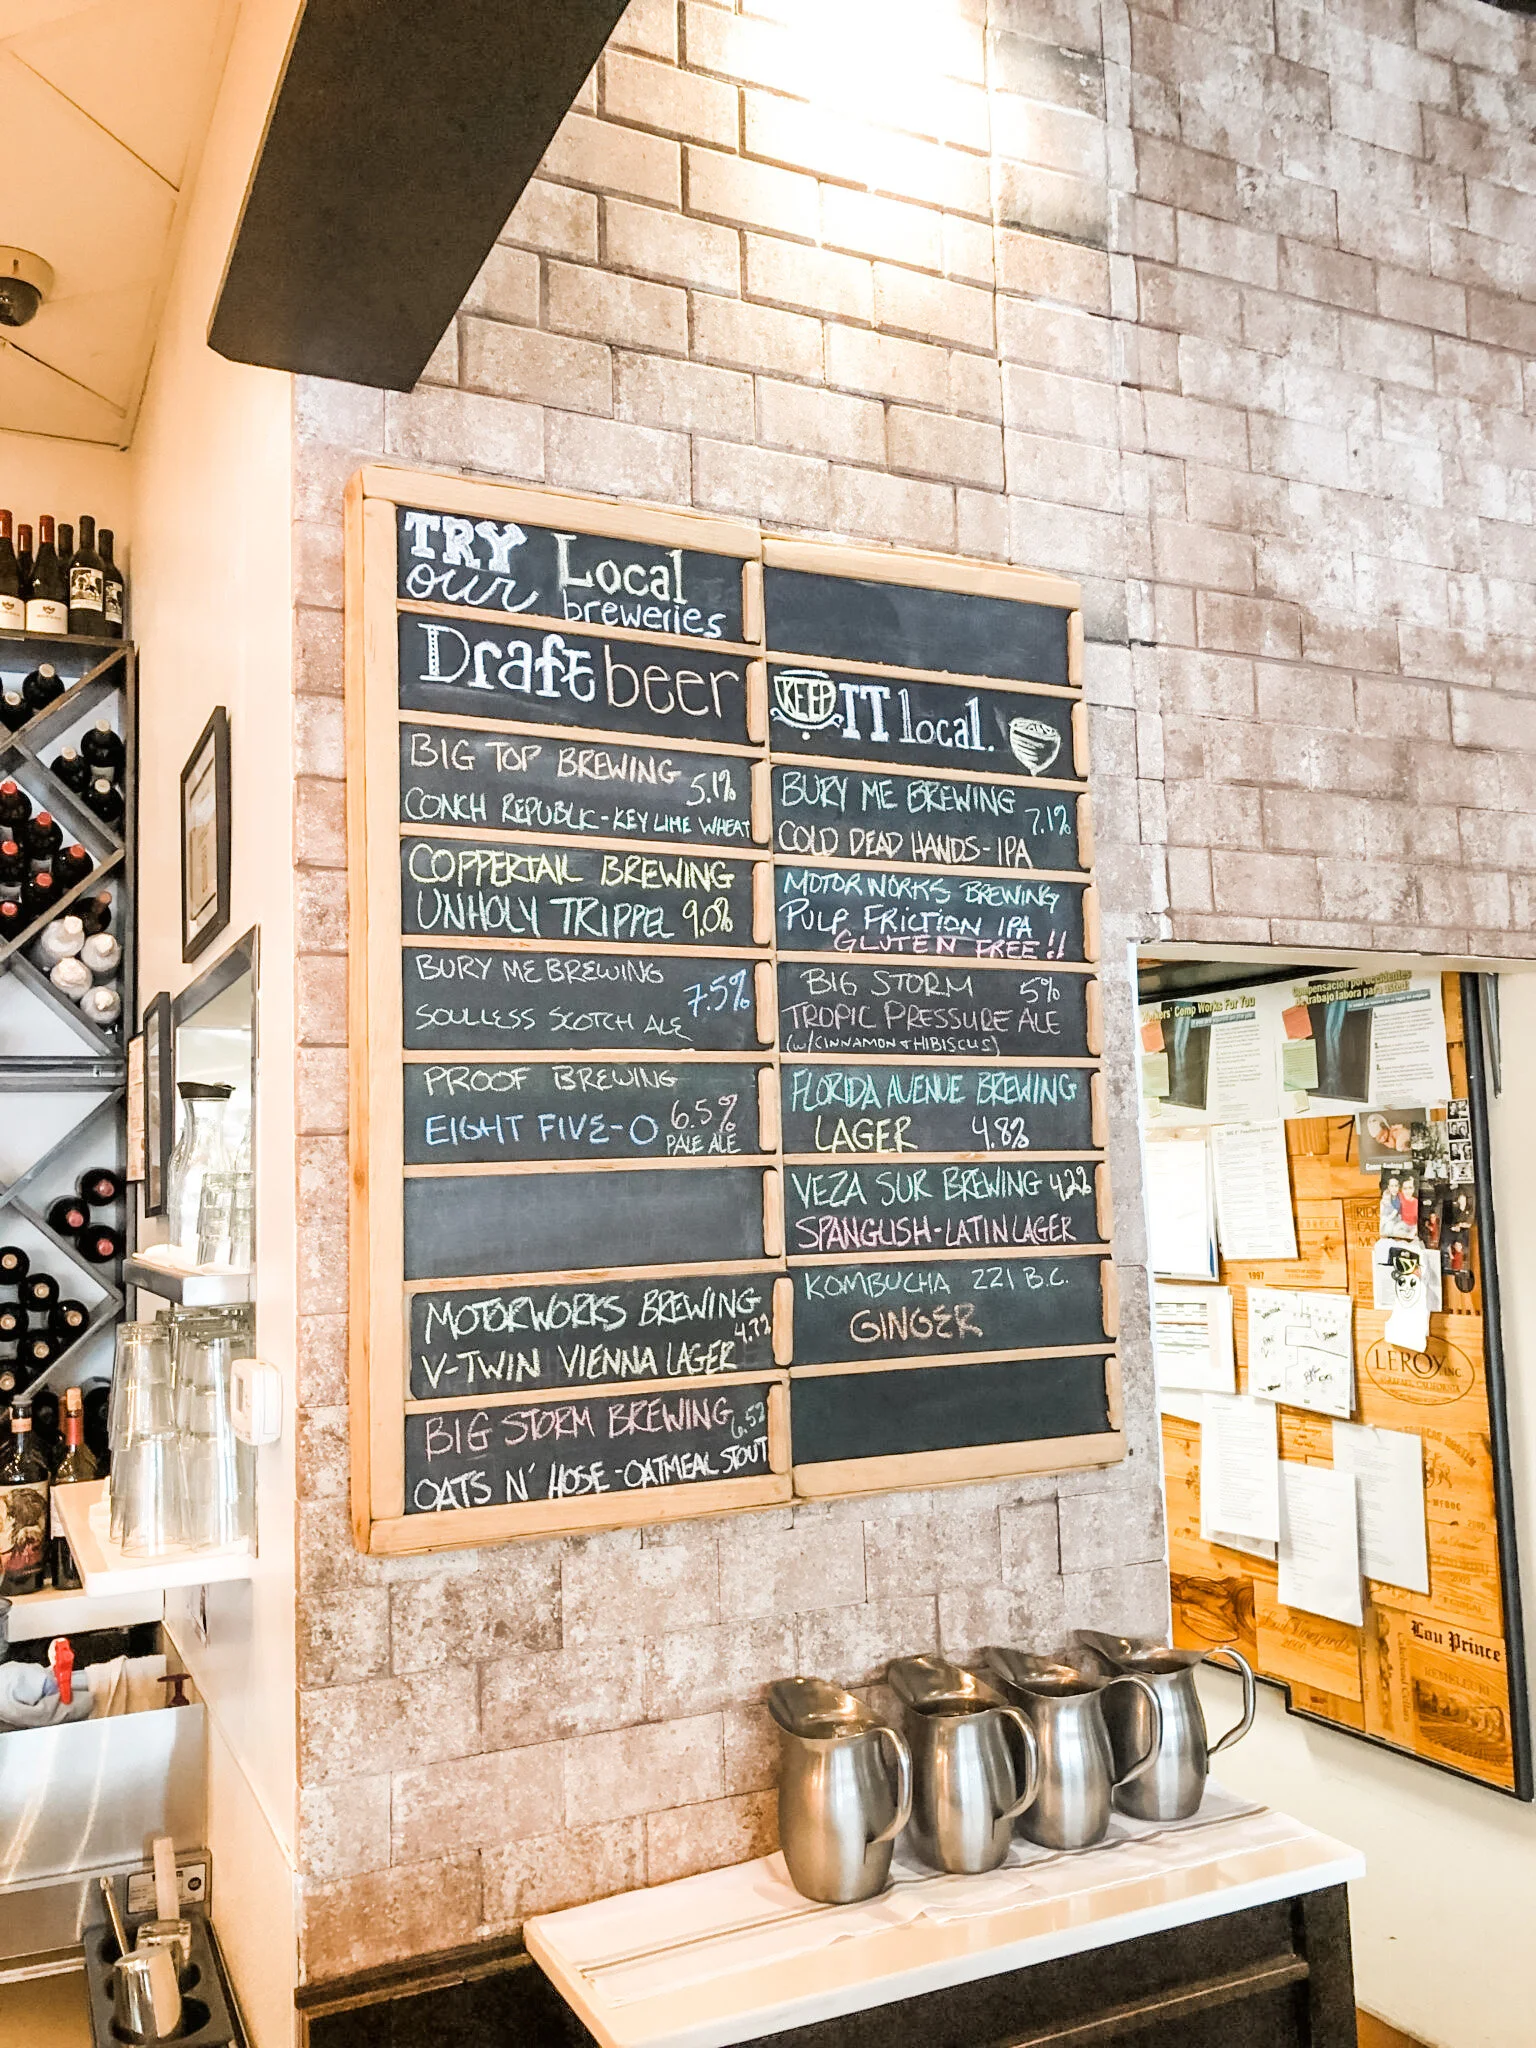 TRY Local
our breweries
Draft beer
BIG TOP BREWING 5.1%
CONCH REPUBLIC-KEY LIME WHEAT
COPPERTAIL BREWING
UNHOLY TRIPPEL 9.0%
BURY ME BREWING 7.5%
SOULLESS SCOTCH ALE
PROOF BREWING
EIGHT FIVE-O 6.5%
PALE ALE
MOTORWORKS BREWING
V-TWIN VIENNA LAGER 4.7%
BIG STORM BREWING 6.5%
OATS N' HOSE-OATMEAL STOUT
KEEP IT local.
BURY ME BREWING 7.1%
COLD DEAD HANDS-IPA
MOTORWORKS BREWING
PULP FRICTION IPA
GLUTEN FREE!!
BIG STORM 5%
TROPIC PRESSURE ALE
(W/CINNAMON + HIBISCUS)
FLORIDA AVENUE BREWING
LAGER 4.8%
VEZA SUR BREWING 4.2%
SPANGLISH-LATIN LAGER
KOMBUCHA 221 B.C.
GINGER
Comp Works For You
Compensación por accidentes
de trabajo labora para usted!
1997
LEROY INC
Lou Prince